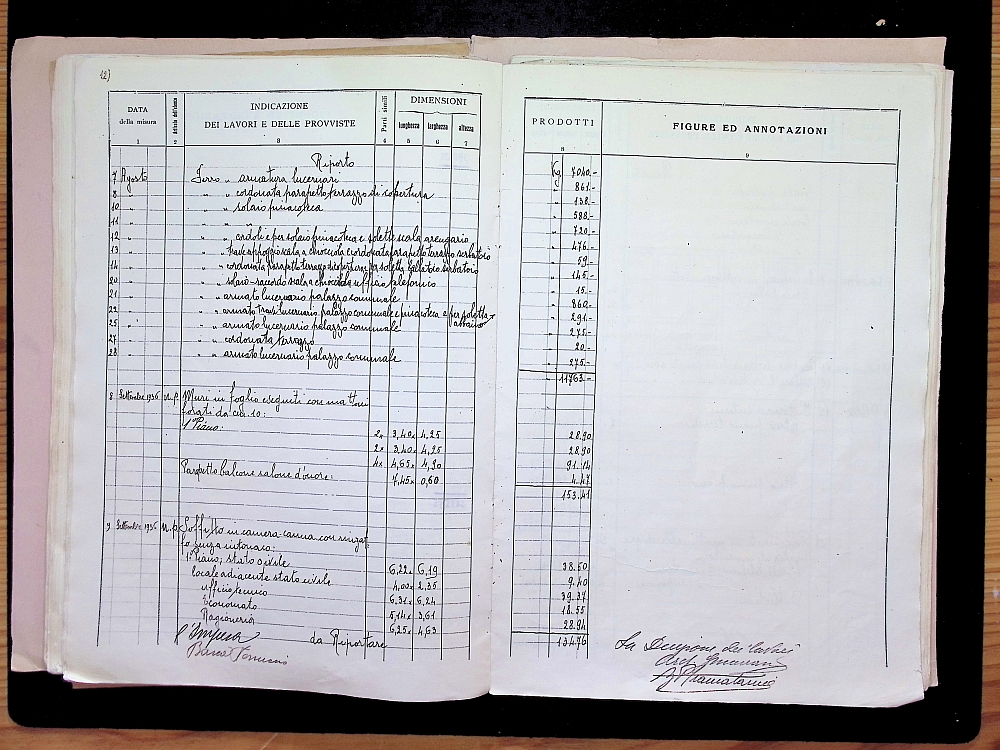 12)
DATA della misura
Articolo dell'elenco
INDICAZIONE
DEI LAVORI E DELLE PROVVISTE
Parti simili
DIMENSIONI
lunghezza larghezza altezza
1 2 3 4 5 6 7
PRODOTTI
8
FIGURE ED ANNOTAZIONI
9
Riporto Kg 7040.-
7 Agosto Ferro " armatura lucernari " 861.-
8 " " " cordonata parapetto terrazzo di copertura " 138.-
10 " " " solaio pinacoteca " 588.-
11 " " " " 720.-
12 " " " cordoli e per solaio pinacoteca e soletta scala arengario " 476.-
13 " " " trave appoggio scala a chiocciola e cordonata parapetto terrazzo serbatoio " 59.-
14 " " " cordonata parapetto terrazzo di copertura e per soletta ballatoio serbatoio " 145.-
20 " " " solaio-raccordo scala a chiocciola ufficio telefonico " 15.-
21 " " " armato lucernario palazzo comunale " 860.-
22 " " " armato travi lucernario palazzo comunale e pinacoteca e per soletta " 291.-
25 " " " armato lucernario palazzo comunale " 275.-
27 " " " cordonata terrazzo " 20.-
28 " " " armato lucernario palazzo comunale " 275.-
" 11763.-
8 Settembre 1936 N.P. Muri in foglio eseguiti con mattoni
forati da cm. 10:
1° Piano:
2x 3,40x 4,25 28.90
2x 3,40x 4,25 28.90
4x 4,65x 4,90 91.14
Parapetto balcone salone d'onore: 7,45x 0,60 4.47
153.41
9 Settembre 1936 N.P. Soffitto in camera-canna con
senza intonaco:
1° Piano; stato civile 6,22x 6,19 38.50
locale adiacente stato civile 4,00x 2,35 9.40
ufficio tecnico 6,31x 6,24 39.37
Economato 5,14x 3,61 18.55
Ragioneria 6,25x 4,63 28.94
da Riportare 134.76
l'Impresa
La Direzione dei lavori